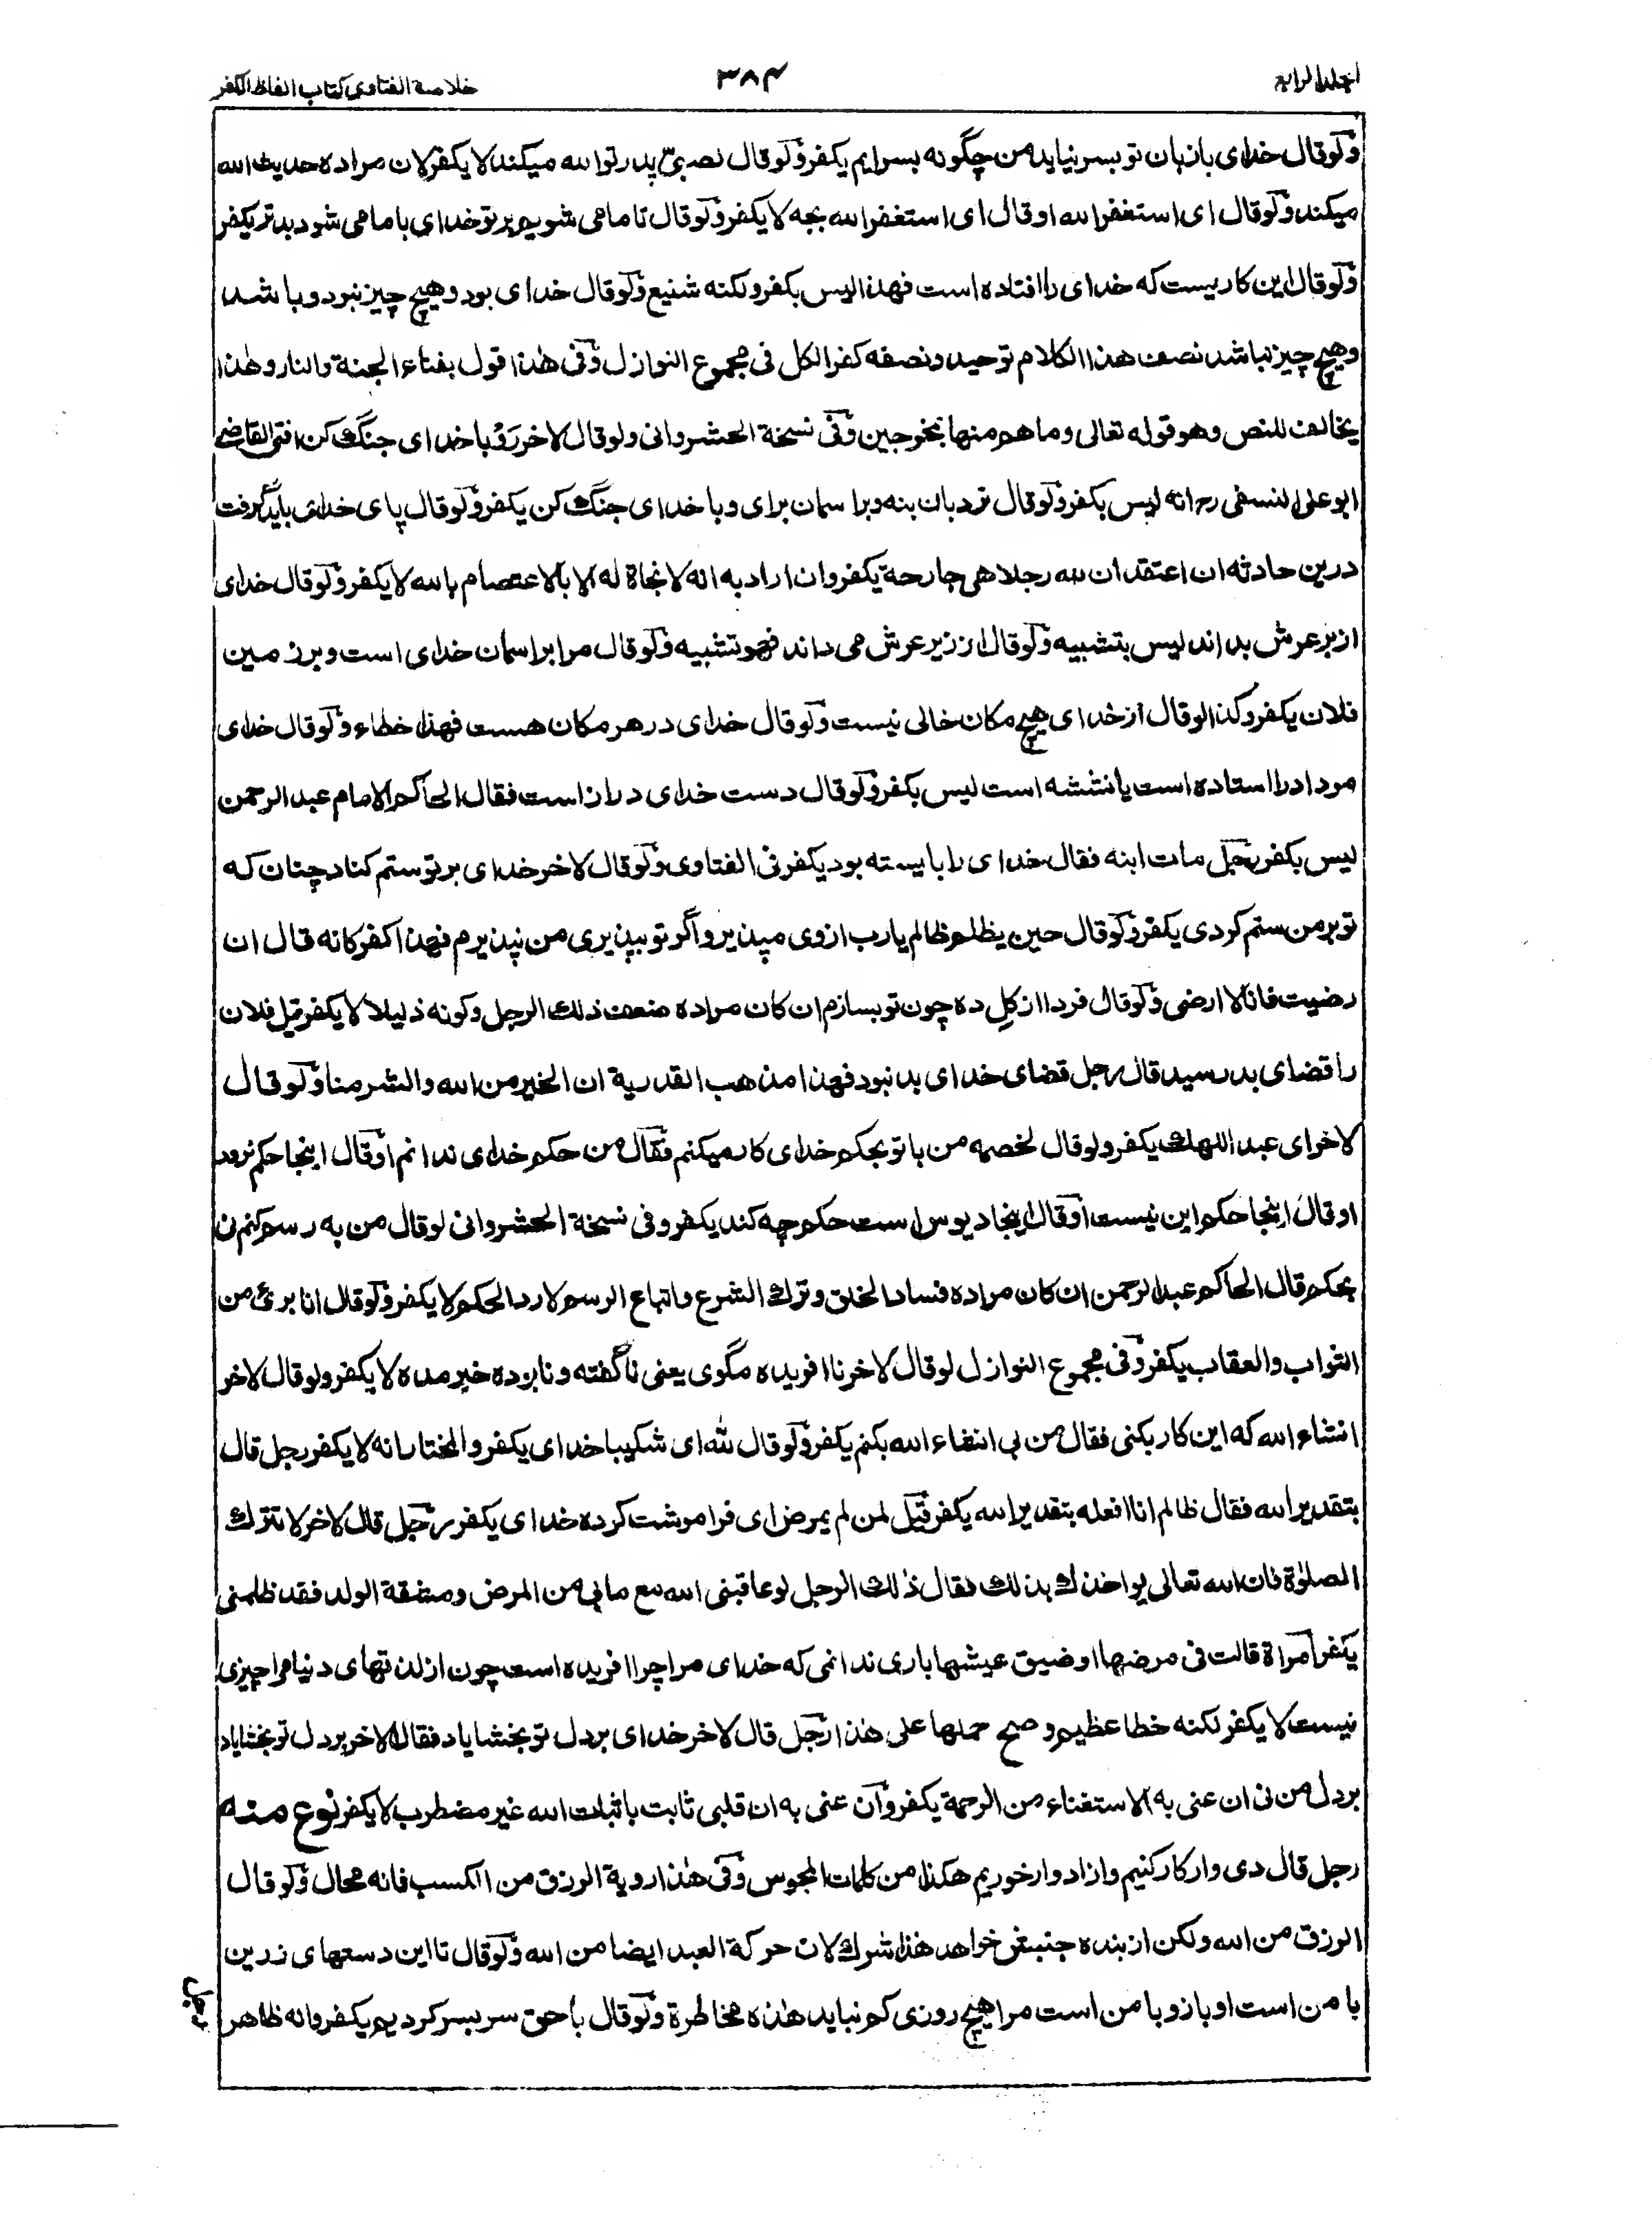 خلاصة الفتاوى كتاب الفاظ الكفر ٣٨٤ الجلد الرابع
ولو قال خدای بازبان تو بسر نیاید من چگونه بسر ایم یکفر ولو قال لصبیّ پدر تو الله میکند لا یکفر لان مراده حدیث الله
میکند ولو قال ای استغفر الله او قال ای استغفر الله بجه لا یکفر ولو قال تا ما می شویم برتو خدای با ما می شود بدتر یکفر
ولو قال این کاریست که خدای را افتاده است فهذا لیس بکفر ولکنه شنیع ولو قال خدای بود و هیچ چیز نبود و باشد
و هیچ چیز نباشد نصف هذا الکلام توحید و نصفه کفر الکل فی مجموع النوازل وفی هذا قول بفناء الجنة والنار وهذا
یخالف للنص وهو قوله تعالی وما هم منها بمخرجین وفی نسخة الحشروانی ولو قال لاخر رَوْ با خدای جنگ کن افتی القاضی
ابو علی النسفی رح انه لیس بکفر ولو قال نردبان بنه و بر اسمان برای و با خدای جنگ کن یکفر ولو قال پای خدای باید گرفت
درین حادثه ان اعتقد ان لله رجلا هی جارحة یکفر وان اراد به انه لا نجاة له الا بالاعتصام بالله لا یکفر ولو قال خدای
از بر عرش بداند لیس بتشبیه ولو قال از زیر عرش می داند فهو تشبیه ولو قال مرا بر اسمان خدای است و بر زمین
فلان یکفر وکذا لو قال از خدای هیچ مکان خالی نیست ولو قال خدای در هر مکان هست فهذا خطاء ولو قال خدای
مر داد را استاده است یا نشسته است لیس بکفر ولو قال دست خدای دراز است فقال الحاکم الامام عبد الرحمن
لیس بکفر رجل مات ابنه فقال خدای را بایسته بود یکفر فی الفتاوی ولو قال لاخر خدای بر تو ستم کناد چنان که
تو بر من ستم کردی یکفر ولو قال حین یظلم ظالم یا رب ازوی مپذیر و اگر تو بپذیری من نپذیرم فهذا کفر کانه قال ان
رضیت فانا لا ارضی ولو قال فردا از کلِ ده چون تو بسازم ان کان مراده ضعف ذلك الرجل وکونه ذلیلا لا یکفر قیل فلان
را قضای بد رسید قال رجل قضای خدای بد نبود فهذا مذهب القدریة ان الخیر من الله والشر منا ولو قال
لاخر ای عبد اللهك یکفر ولو قال لخصمه من با تو بحکم خدای کار میکنم فقال من حکم خدای ندانم او قال اینجا حکم نرود
او قال اینجا حکم این نیست او قال اینجا دبوس است حکم چه کند یکفر وفی نسخة الحشروانی لو قال من به رسم کنم نه
بحکم قال الحاکم عبد الرحمن ان کان مراده فساد الخلق وترك الشرع واتباع الرسم لا رد الحکم لا یکفر ولو قال انا بریٔ من
الثواب والعقاب یکفر وفی مجموع النوازل لو قال لاخر نا افریده مگوی یعنی نا گفته و نا بزده خبر مده لا یکفر ولو قال لاخر
انشاء الله که این کار بکنی فقال من بی انشاء الله بکنم یکفر ولو قال لله ای شکیبا خدای یکفر والمختار انه لا یکفر رجل قال
بتقدیر الله فقال ظالم انا افعله بتقدیر الله یکفر قیل لمن لم یمرض ای فراموشت کرده خدای یکفر رجل قال لاخر لا تترك
الصلٰوة فان الله تعالی یواخذك بذلك فقال ذٰلك الرجل لو عاقبنی الله مع ما بی من المرض ومشقة الولد فقد ظلمنی
یکفر امراة قالت فی مرضها او ضیق عیشها باری ندانمی که خدای مرا چرا افریده است چون از لذتهای دنیا مرا چیزی
نیست لا یکفر لکنه خطا عظیم وصح حملها علی هذا رجل قال لاخر خدای بر دل تو بخشایاد فقال الاخر بر دل تو بخشایاد
بر دل من نی ان عنی به الاستغناء من الرحمة یکفر وان عنی به ان قلبی ثابت باثبات الله غیر مضطرب لا یکفر نوع منه
رجل قال دی وار کار کنیم و ازاد وار خوریم هکذا من کلمات المجوس وفی هذا رویة الرزق من الکسب فانه محال ولو قال
الرزق من الله ولکن از بنده جنبش خواهد هذا شرك لان حرکة العبد ایضا من الله ولو قال تا این دستهای زرین
با من است او بازو با من است مرا هیچ روزی کم نیاید هذه مخاطرة ولو قال با حق سر بسر کردیم یکفر وانه ظاهر